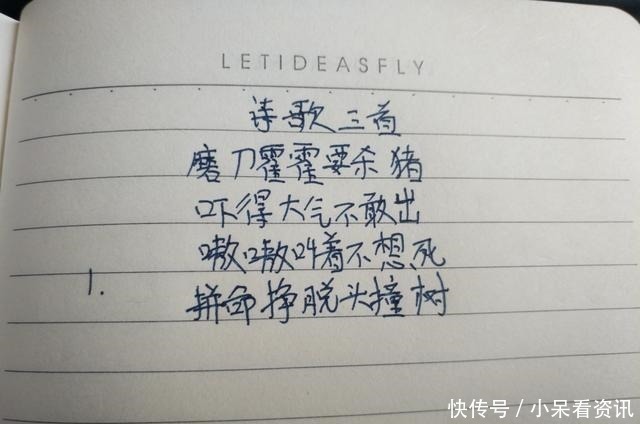 LETIDEASFLY
诗歌三首
磨刀霍霍要杀猪
吓得大气不敢出
嗷嗷叫着不想死
1.
拼命挣脱头撞树
快传号／小呆看资讯